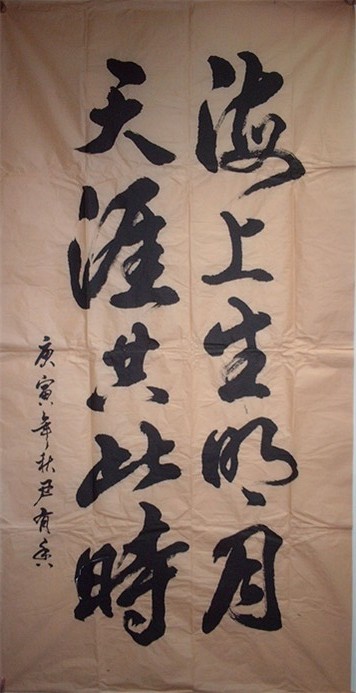 海上生明月
天涯共此時
庚寅年秋尹有香